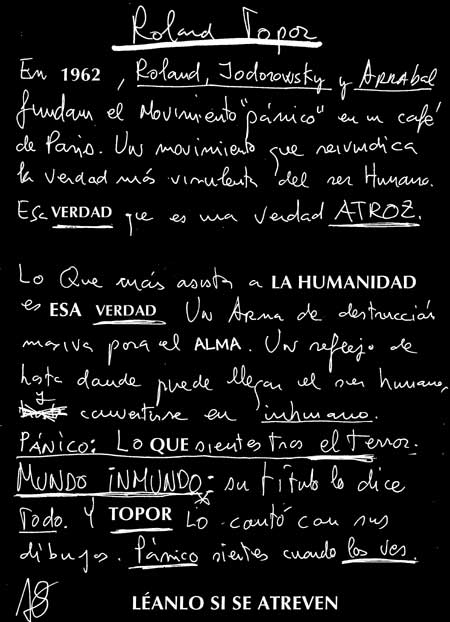 Roland Topor
En 1962, Roland, Jodorowsky y Arrabal
fundan el Movimiento "pánico" en un café
de París. Un movimiento que reivindica
la verdad más virulenta del ser Humano.
Esa VERDAD que es una verdad ATROZ.
Lo Que más asusta a LA HUMANIDAD
es ESA VERDAD Un Arma de destrucción
masiva para el ALMA. Un reflejo de
hasta donde puede llegar el ser humano,
y convertirse en inhumano.
PÁNICO: Lo QUE sientes tras el terror.
MUNDO INMUNDO: su título lo dice
Todo. Y TOPOR Lo contó con sus
dibujos. Pánico sientes cuando los ves.
LÉANLO SI SE ATREVEN